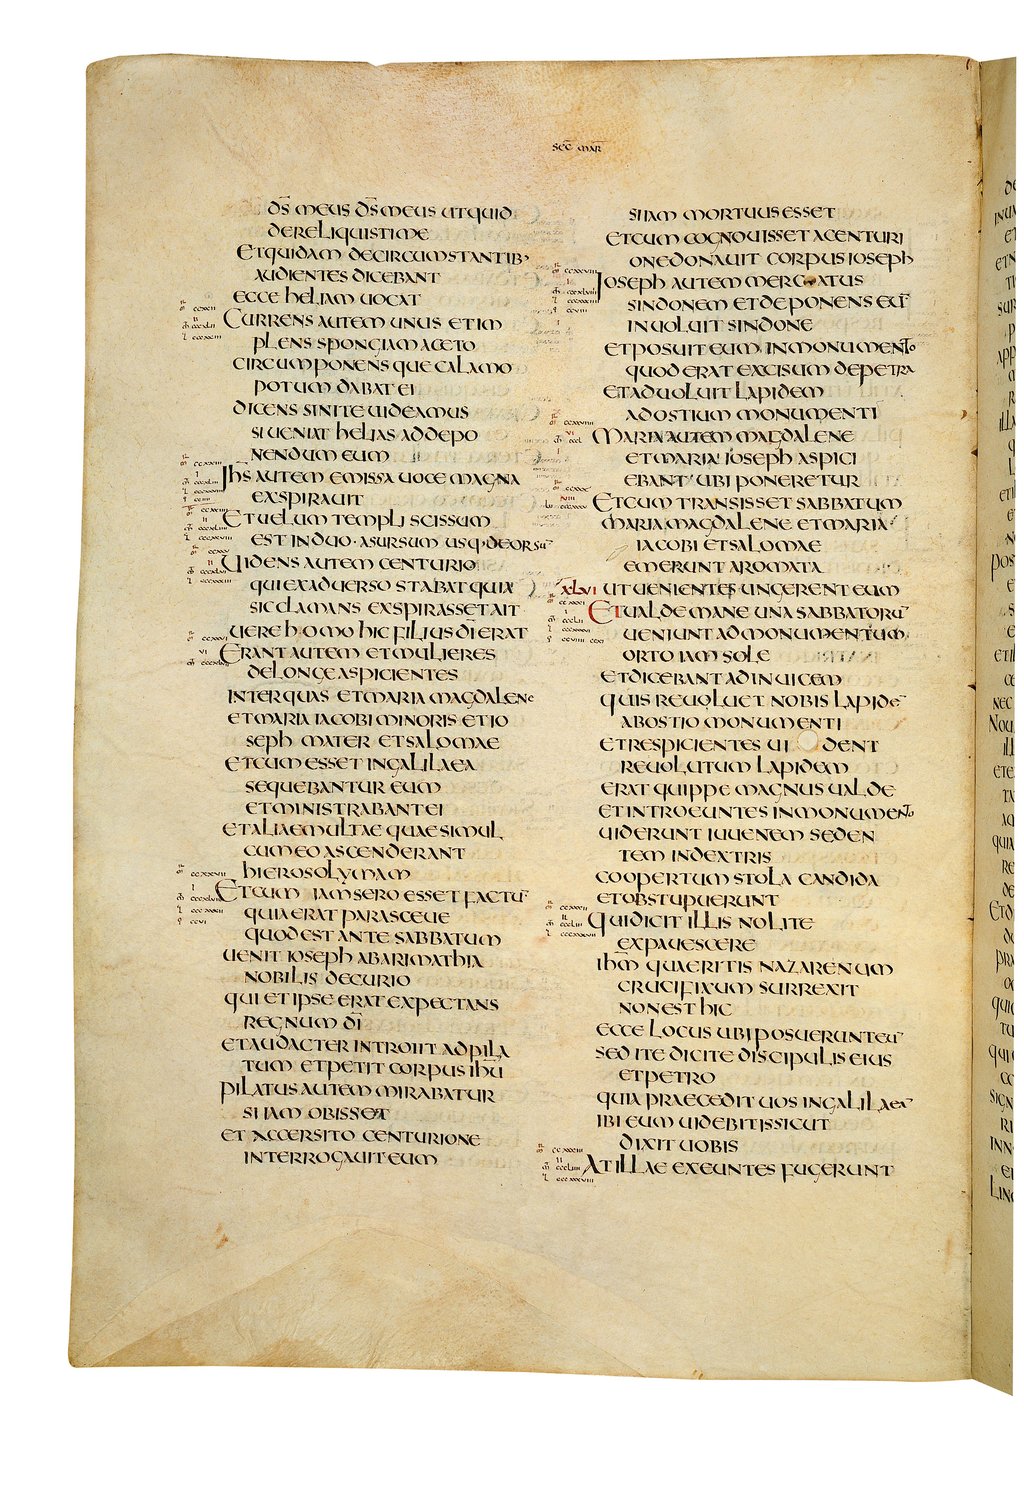 sec mar
ds meus ds meus utquid
dereliquistime
Etquidam decircumstantib'
audientes dicebant
ecce heliam uocat
Currens autem unus etim
plens spongiam aceto
circumponensque calamo
potum dabat ei
dicens sinite uideamus
si ueniat helias addepo
nendum eum
Ihs autem emissa uoce magna
exspirauit
Et uelum templi scissum
est induo · asursum usq·deorsu
Uidens autem centurio
qui exaduerso stabat quia
sic clamans exspirasset ait
uere homo hic filius di erat
Erant autem etmulieres
delonge aspicientes
inter quas etmaria magdalene
etmaria iacobi minoris etio
seph mater etsalomae
etcum esset ingalilaea
sequebantur eum
etministrabant ei
etaliaemultae quaesimul
cumeo ascenderant
hierosolymam
Etcum iamsero esset factu
quia erat parasceue
quod est ante sabbatum
uenit ioseph abarimathia
nobilis decurio
qui et ipse erat expectans
regnum di
etaudacter introiit adpila
tum etpetit corpus ihu
pilatus autem mirabatur
si iam obisset
et accersito centurione
interrogauit eum
siiam mortuus esset
etcum cognouisset acenturi
onedonauit corpus ioseph
Ioseph autem mercatus
sindonem etdeponens eu
inuoluit sindone
etposuit eum inmonumento
quod erat excisum depetra
etaduoluit lapidem
adostium monumenti
Maria autem magdalene
etmaria ioseph aspici
ebant ubi poneretur
Etcum transisset sabbatum
maria magdalene etmaria
iacobi etsalomae
emerunt aromata
xlvi utuenientes ungerent eum
Etualde mane una sabbatoru
ueniunt admonumentum
orto iam sole
etdicebant adinuicem
quis reuoluet nobis lapide
abostio monumenti
etrespicientes ui dent
reuolutum lapidem
erat quippe magnus ualde
etintroeuntes inmonumento
uiderunt iuuenem seden
tem indextris
coopertum stola candida
etobstupuerunt
quidicit illis nolite
expauescere
ihm quaeritis nazarenum
crucifixum surrexit
nonest hic
ecce locus ubi posuerunt eu
sed ite dicite discipulis eius
etpetro
quia praecedit uos ingalilaea
ibi eum uidebitis sicut
dixit uobis
At illae exeuntes fugerunt